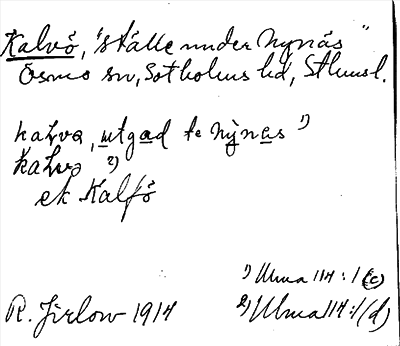 Kalvö, "ställe under Nynäs"
Ösmo sn, Sotholms hd, Sthmsl.
kaLvə, utgad te nynäs 1)
kaLvə 2)
ek Kalfö
1) Ulma 114:1 (c)
R. Jirlow 1914 2) Ulma 114:1 (d)